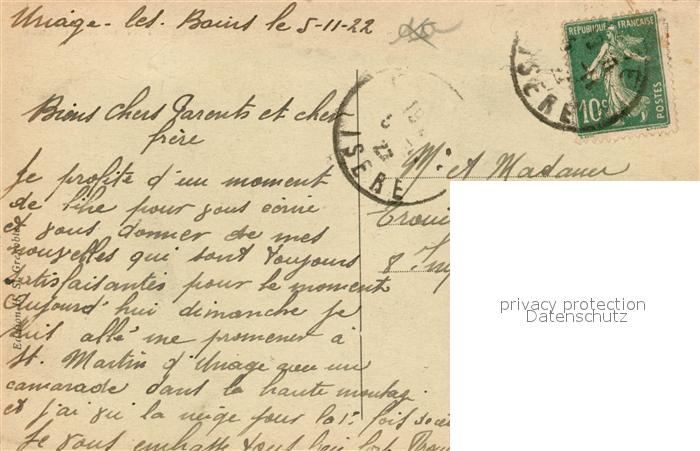 Uriage-les-Bains le 5-11-22
REPUBLIQUE FRANÇAISE
10c
POSTES
ISERE
ISERE
Biens chers Parents et cher
frère
Je profite d'un moment
de libe pour vous écrire
et vous donner de mes
nouvelles qui sont toujours
satisfaisantes pour le moment
Aujourd'hui dimanche je
suis allé me promener à
St. Martin d'Uriage avec un
camarade dans la haute montag
et j'ai vu la neige pour la 1e fois
Je vous embrasse tous
Mr et Madame
privacy protection
Datenschutz